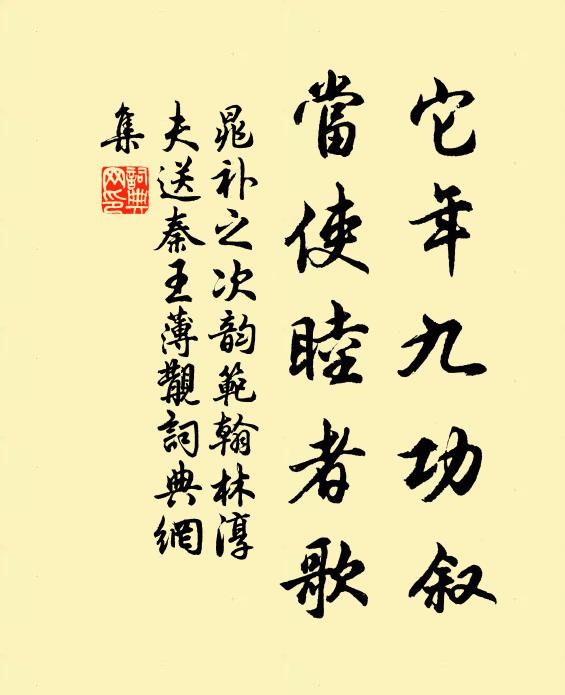 它年九功叙
當使睦者歌
晁补之次韵範翰林淳
夫送秦王薄觏詞典網
集
詞典網印